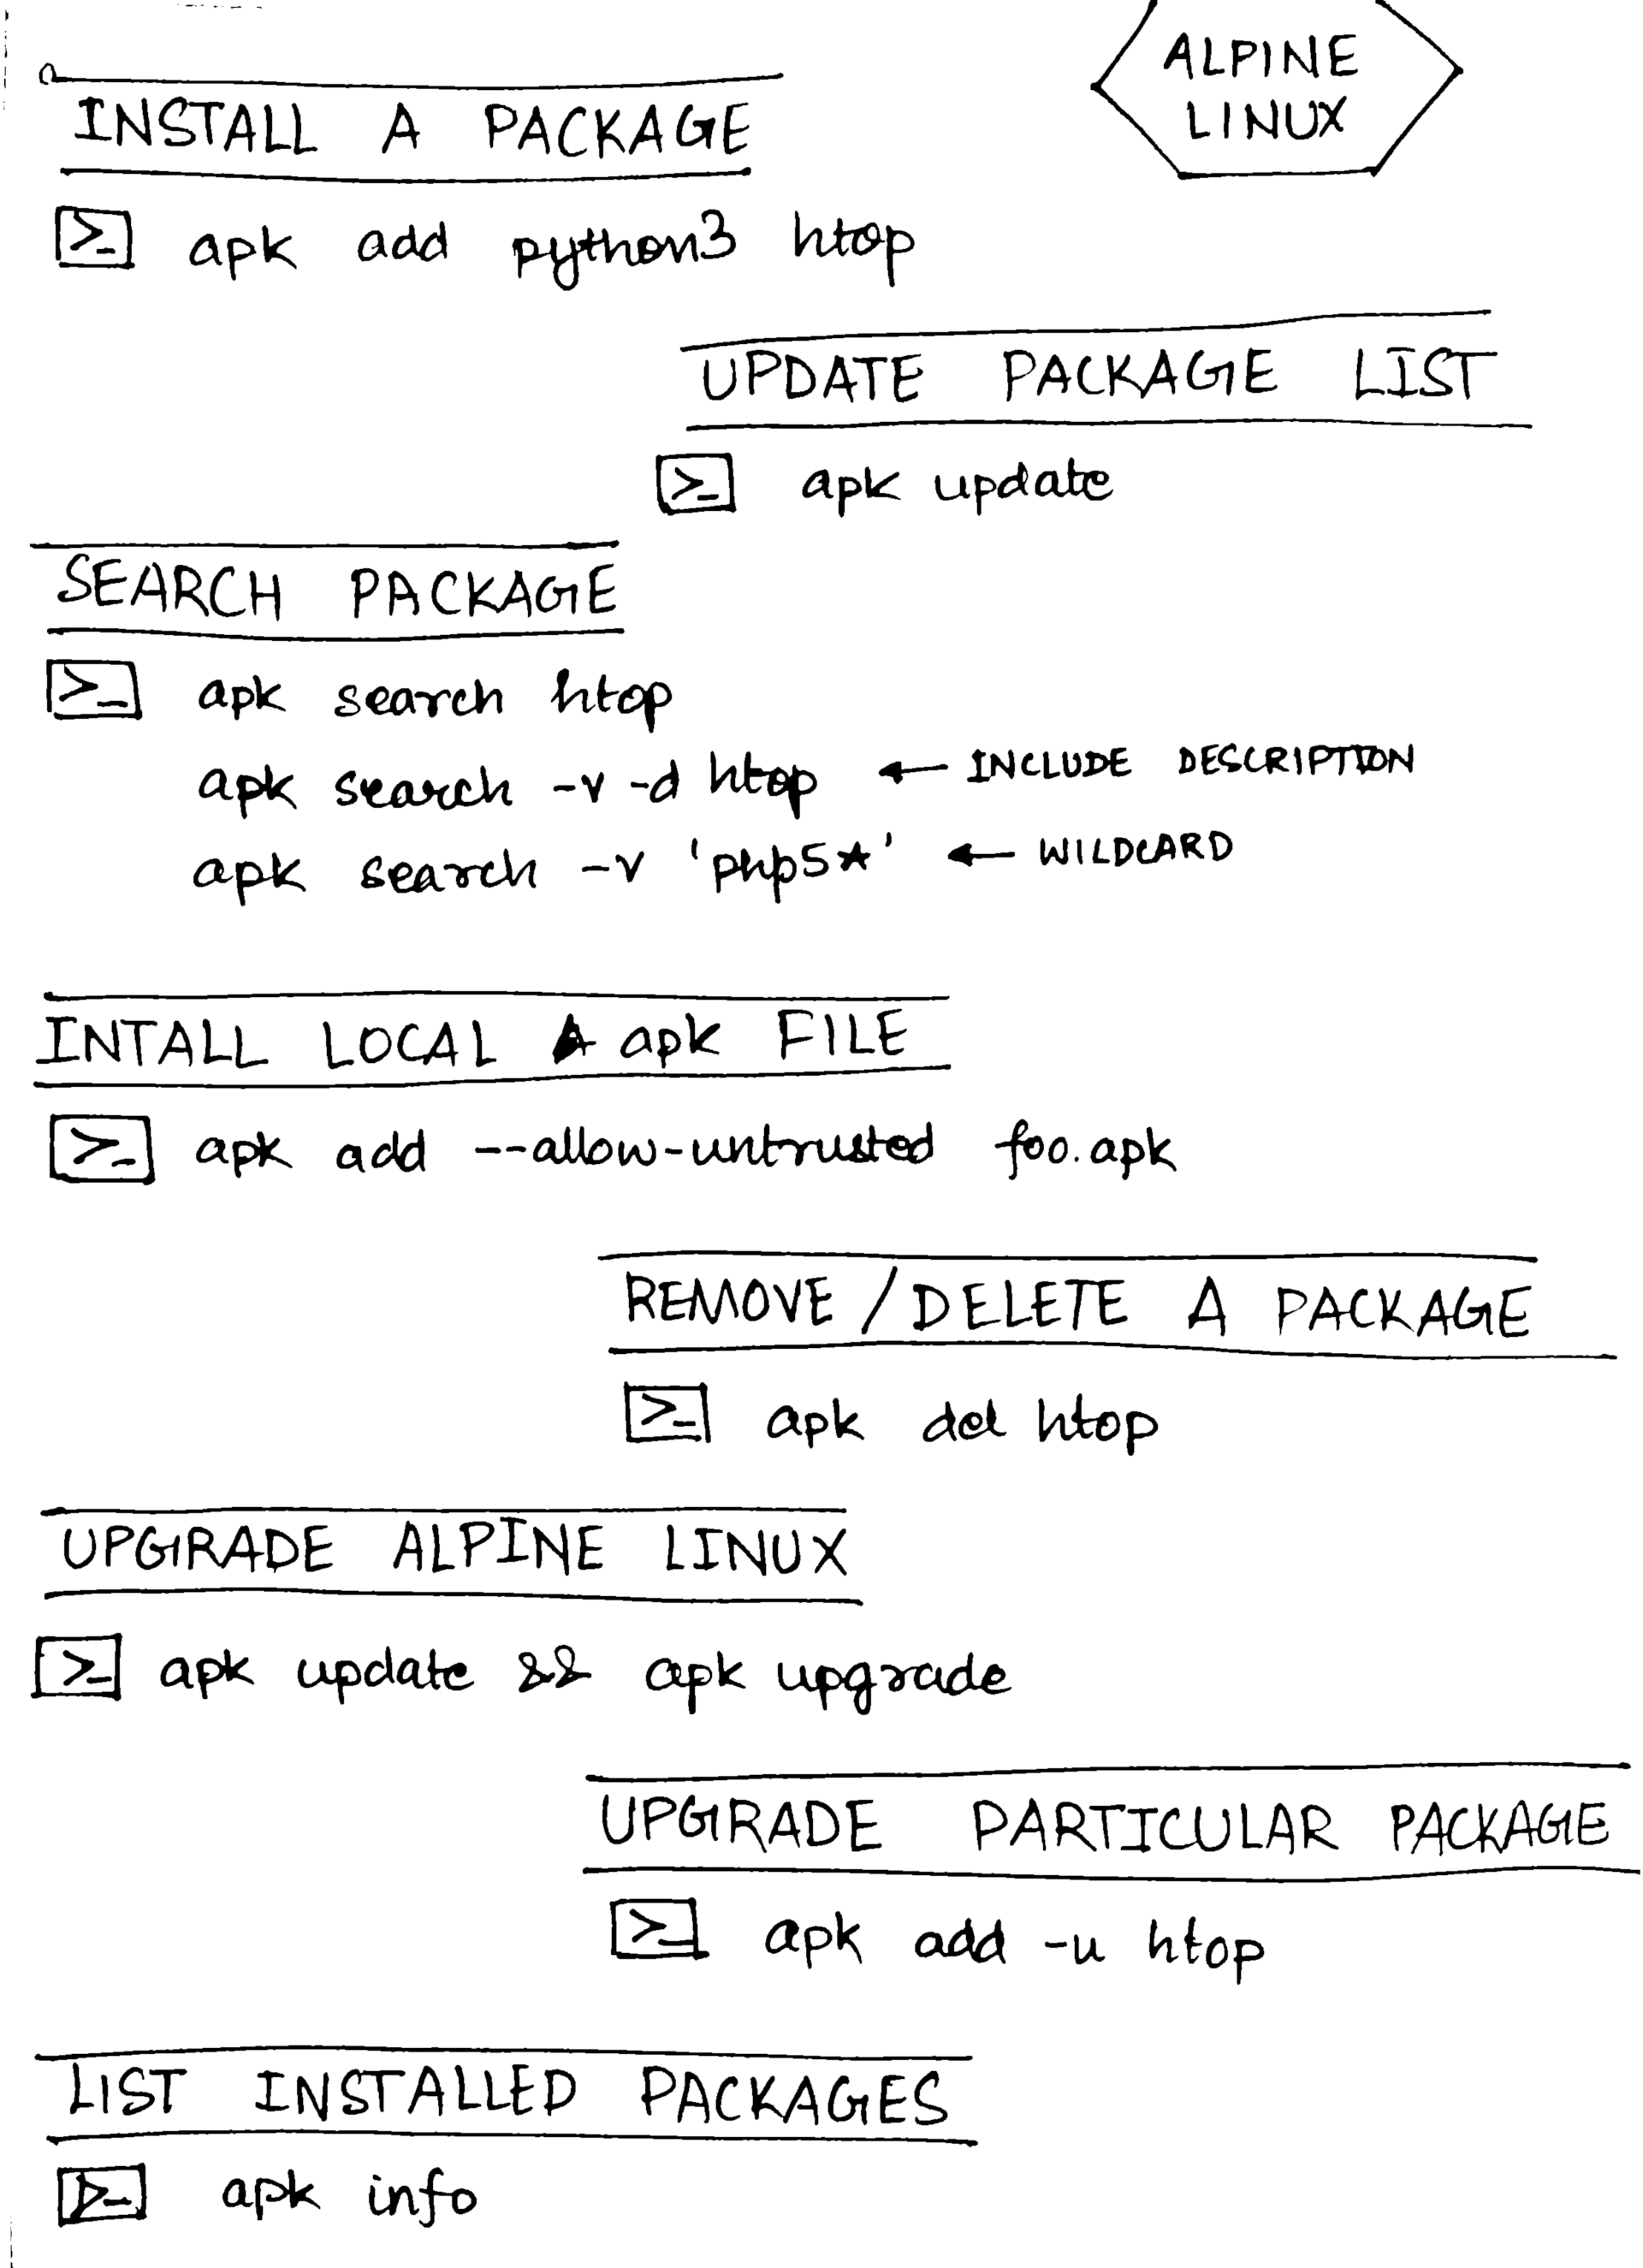 ALPINE
LINUX
INSTALL A PACKAGE
>_ apk add python3 htop
UPDATE PACKAGE LIST
>_ apk update
SEARCH PACKAGE
>_ apk search htop
apk search -v -d htop ← INCLUDE DESCRIPTION
apk search -v 'php5*' ← WILDCARD
INTALL LOCAL apk FILE
>_ apk add --allow-untrusted foo.apk
REMOVE / DELETE A PACKAGE
>_ apk del htop
UPGRADE ALPINE LINUX
>_ apk update && apk upgrade
UPGRADE PARTICULAR PACKAGE
>_ apk add -u htop
LIST INSTALLED PACKAGES
>_ apk info